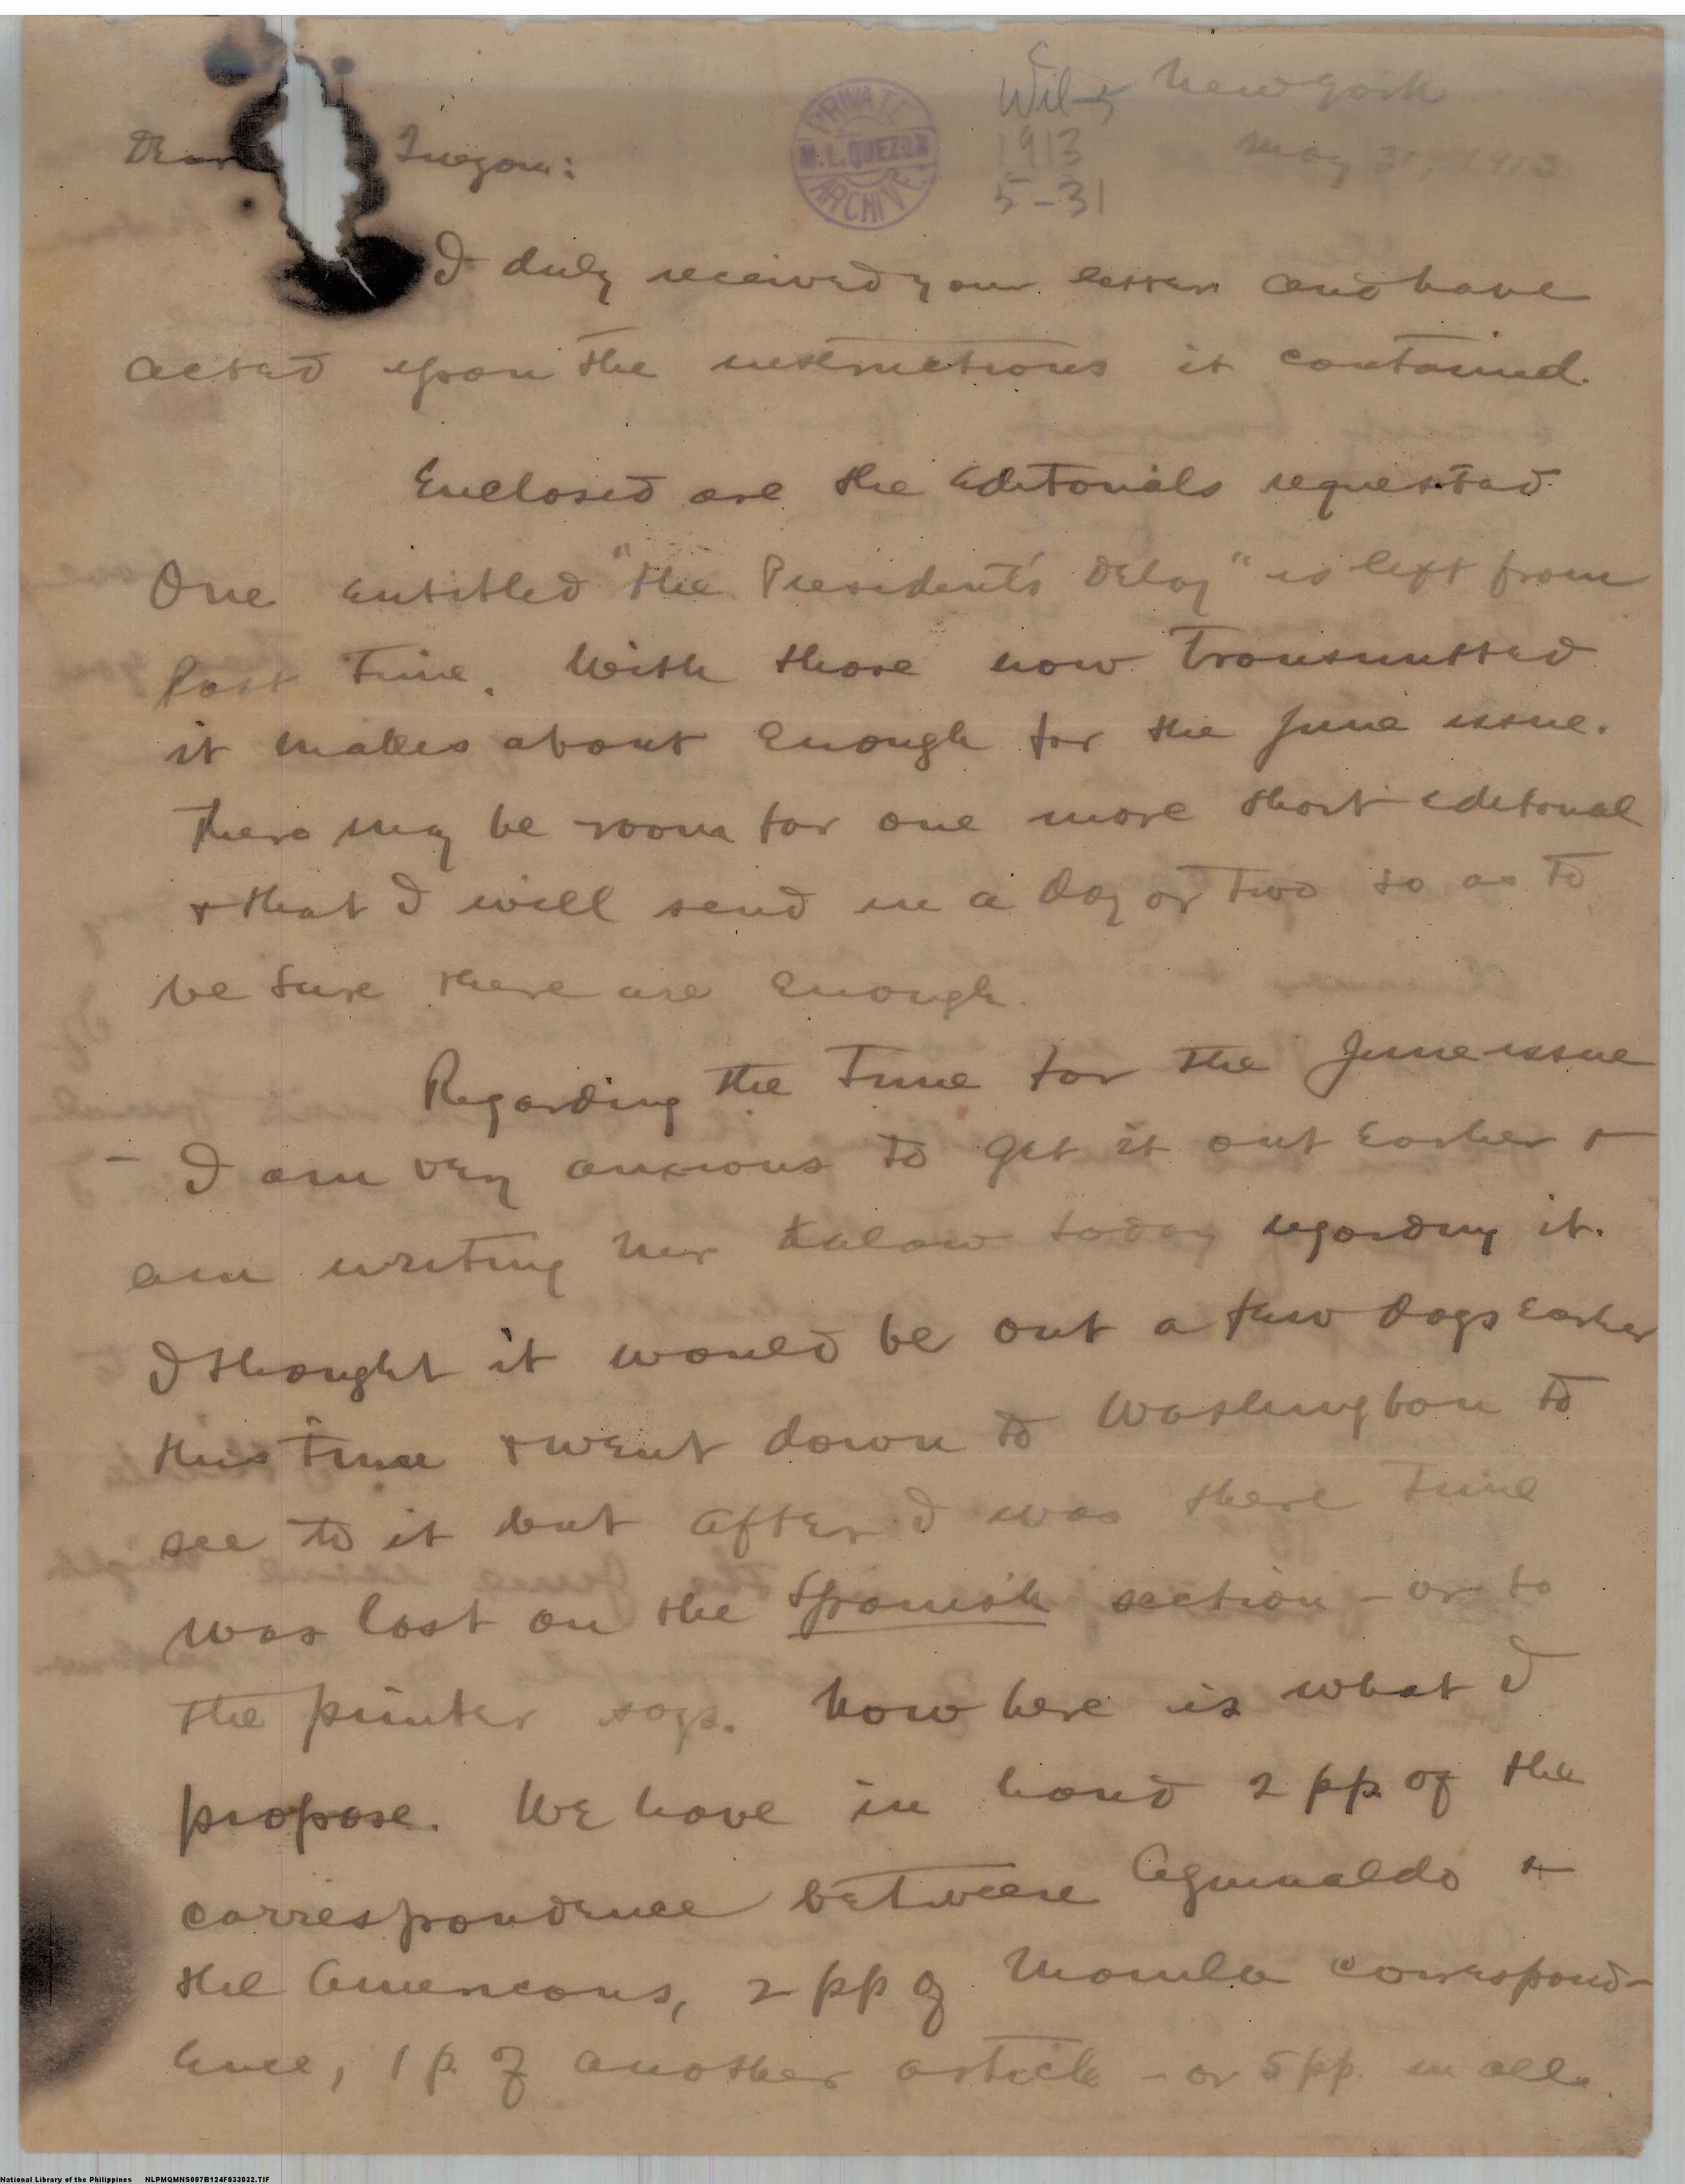 Wils
New York
1913
May 31, 1913
5-31
PRIVATE
M.L. QUEZON
ARCHIVE
Dear Quezon:
I duly received your letter and have
acted upon the instructions it contained.
Enclosed are the editorials requested.
One entitled "The President's Delay" is left from
last time. With those now transmitted
it makes about enough for the June issue.
There may be room for one more short editorial
+ that I will send in a day or two so as to
be sure there are enough.
Regarding the time for the June issue
- I am very anxious to get it out earlier +
am writing Mr Kalaw today regarding it.
I thought it would be out a few days earlier
this time + went down to Washington to
see to it but after I was there time
was lost on the Spanish section - or so
the printer says. Now here is what I
propose. We have in hand 2 pp. of the
correspondence between Aguinaldo +
the Americans, 2 pp of Manila correspond-
ence, 1 p. of another article - or 5 pp. in all.
National Library of the Philippines NLPMQMNS007B124F033032.TIF